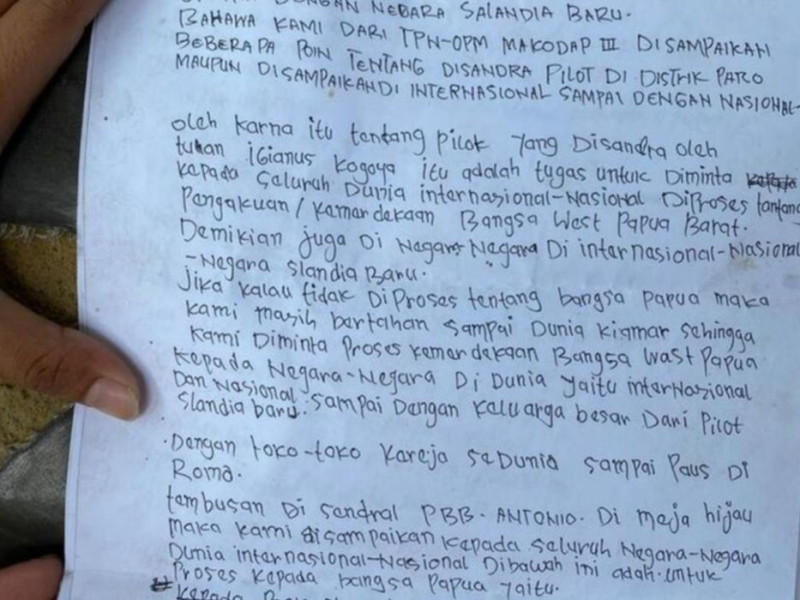 DENGAN NEGARA SALANDIA BARU.
BAHAWA KAMI DARI TPN-OPM MAKODAP III DISAMPAIKAN
BEBERAPA POIN TENTANG DISANDRA PILOT DI DISTRIK PARO
MAUPUN DISAMPAIKANDI INTERNASIONAL SAMPAI DENGAN NASIONAL-
oleh karna itu tentang pilot yang Disandra oleh
tuhan iGianus Kogoya itu adalah tugas untuk Diminta
kepada seluruh Dunia internasional-Nasional DiProses tantang
Pengakuan / kemardekaan Bangsa West Papua Barat.
Demikian juga Di Negara-Negara Di internasional-Nasional
-Negara Slandia Baru.
Jika kalau tidak DiProses tentang bangsa papua maka
kami masih bertahan sampai Dunia kiamar sehingga
kami Diminta Proses kemardekaan Bangsa Wast Papua
kepada Negara-Negara Di Dunia yaitu internasional
Dan Nasional Slandia baru. sampai Dengan keluarga besar Dari Pilot
.Dengan toko-toko Kareja seDunia sampai Paus Di
Roma.
tambusan Di sandral PBB. ANTONIO. Di meja hijau
maka kami disampaikan kepada seluruh Negara-Negara
Dunia internasional-Nasional Dibawah ini adah untuk
Proses kepada bangsa Papua yaitu.
kepada